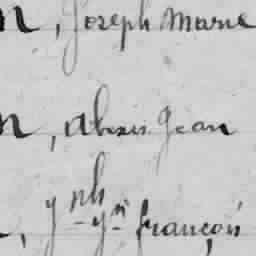 n, Joseph Marie
n, alexis Jean
, françois